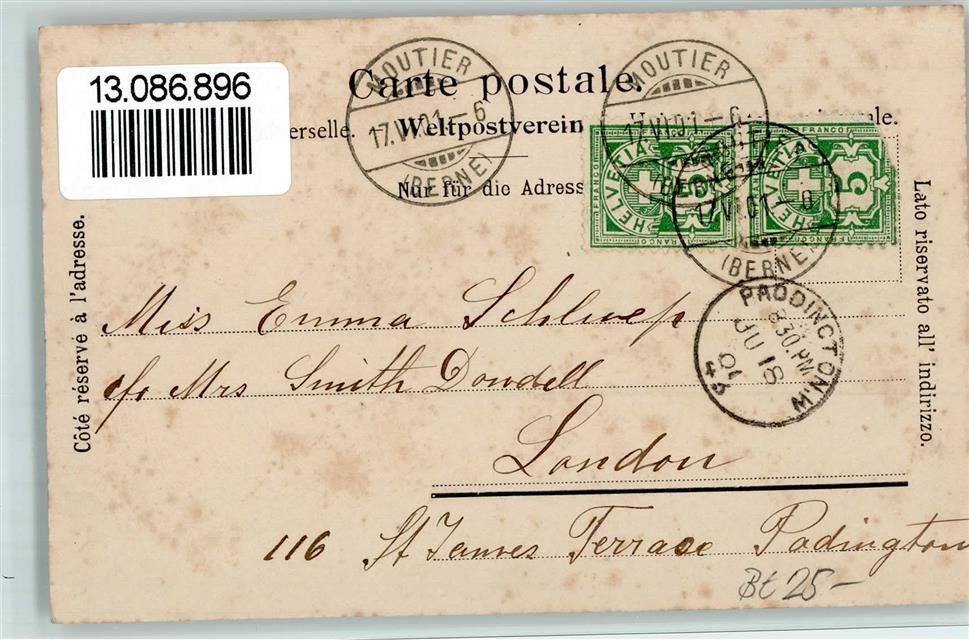 13.086.896
Carte postale.
erselle. Weltpostverein
ale.
Nur für die Adress
MOUTIER
17.VI.01.-6
(BERNE)
MOUTIER
17.VI.01-6
(BERNE)
17.VI.01-
(BERNE)
FRANCO
HELVETIA
5
FRANCO
FRANCO
HELVETIA
5
FRANCO
PADDINGTON.W
8.30 PM
JU 18
01
43
Côté réservé à l'adresse.
Lato riservato all' indirizzo.
Miss Emma Schluep
c/o Mrs Smith Dowdell
London
116 St James Terrace Padington
Bt 25-